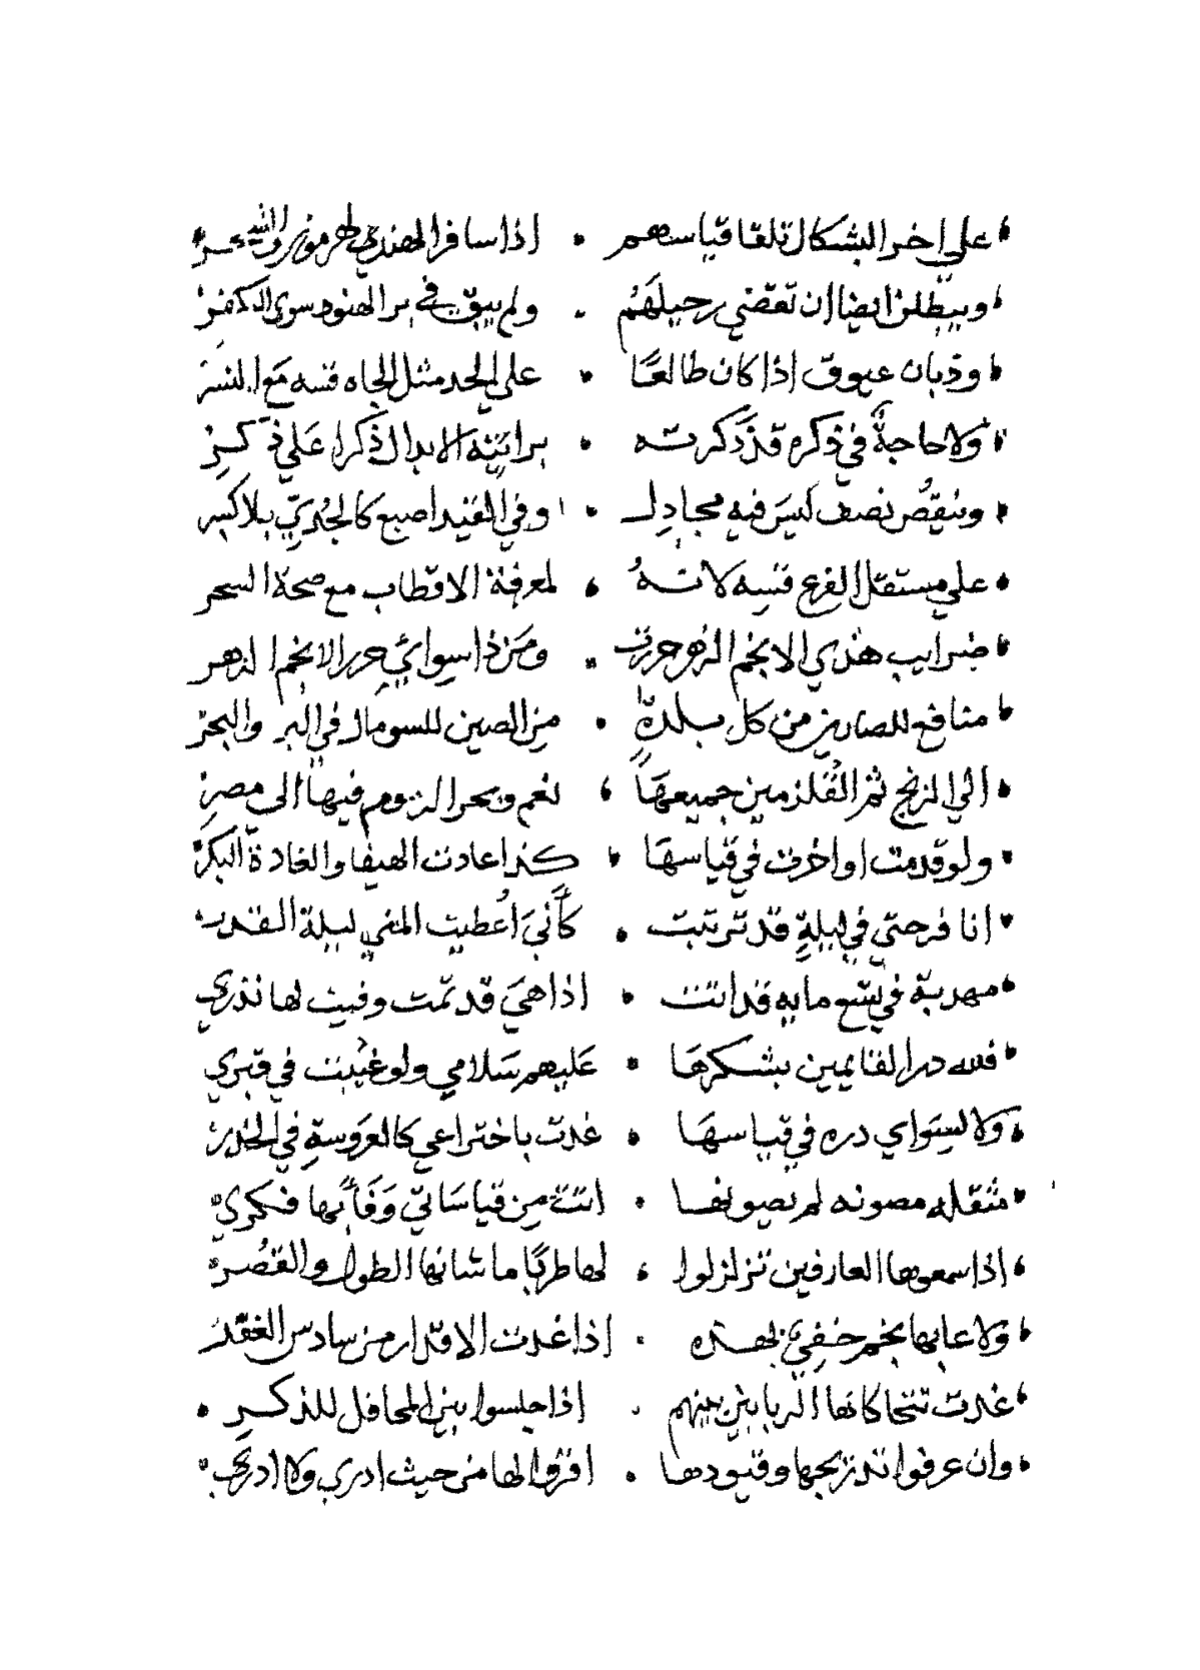 علي اخر البشكال تلقا قياسهم • اذا سافر الهندي لهرموز والشحر
ويبطلن ايضا ان تقضي رحيلهم • ولم يبق في بر الهنود سوى الدكني
وذبان عيوق اذا كان طالعًا • على الحد مثل الجاه قسه مع النسر
ولا حاجةٌ في ذكره قد ذكرته • برانية الابدال ذكرا على ذكر
وينقصُ نصف ليسَ فيه مجادل • وفي القيد اصبع كالجُدَيّ بلا كسر
على مستقل الفرع قسه لانهُ • لمعرفة الاقطاب مع صحة السحر
ضرايب هذي الانجم الزهر حررت • ومَن ذا سوائي حرر الانجم الزهر
منافع للصارين من كل بلدةٍ • من الصين للسومال في البر والبحر
الى الزنج ثم القلزمين جميعهَا • نعم وبحر الروم فيها الى مصر
ولو قدمت او اخرت في قياسهَا • كذا عادت الهيفا والغادة البكر
انا فرحتي في ليلةٍ قد ترتبت • كأنّي اُعطيت المني ليلة القدر
مهدبة في تسع مايه قد اتت • اذا هيَ قد تمّت وفيت لها نذري
فلله در القايمين بشكرهَا • عَليهم سَلامي ولو غيبت في قبري
ولا لسِوَاي دره في قياسهَا • غدت باختراعي كالعروسةِ في الخدر
مثقله مصونه لم يصونها • اتت من قياسَاتي وَفَاتها فكري
اذا سمعوها العارفين تزلزلوا • لها طربًا ما شانها الطول والقصُر
ولا عابها نجم خفِيّ بهذه • اذا غدت الاقدار من سادس الغفر
غدت تتحاكا بها الربابين بينهم • اذا جلسوا بين المحافل للذكر
وان عرفوا تدريجها وقيودها • اقرّوا لها من حيث ادري ولا ادري